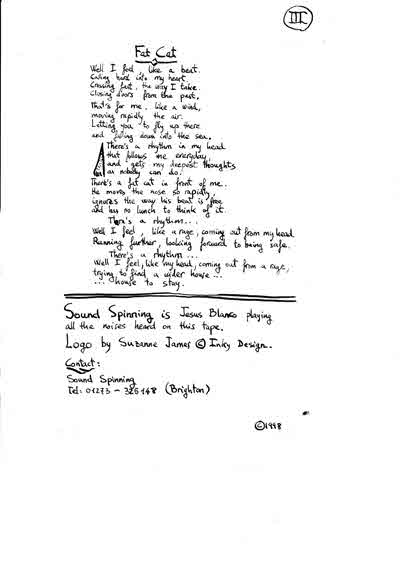 III
Fat Cat
Well I feel like a beat.
Coming hard into my heart.
Crossing fast, the way I take.
Closing doors from the past.
That's for me, like a wind,
moving rapidly the air.
Letting you to fly up there
and falling down into the sea.
There's a rhythm in my head
that follows me everyday,
and gets my deepest thoughts
as nobody can do.
There's a fat cat in front of me..
He moves the nose so rapidly,
ignores the way his beat is free
and has no lunch to think of it.
There's a rhythm...
Well I feel, like a rage, coming out from my head.
Running further, looking forward to being safe.
There's a rhythm...
Well I feel, like my head, coming out from a rage,
trying to find a wider house...
... house to stay.
Sound Spinning is Jesus Blanco playing
all the noises heard on this tape.
Logo by Suzanne James © Inky Design.
Contact:
Sound Spinning
Tel: 01273 - 325148 (Brighton)
©1998